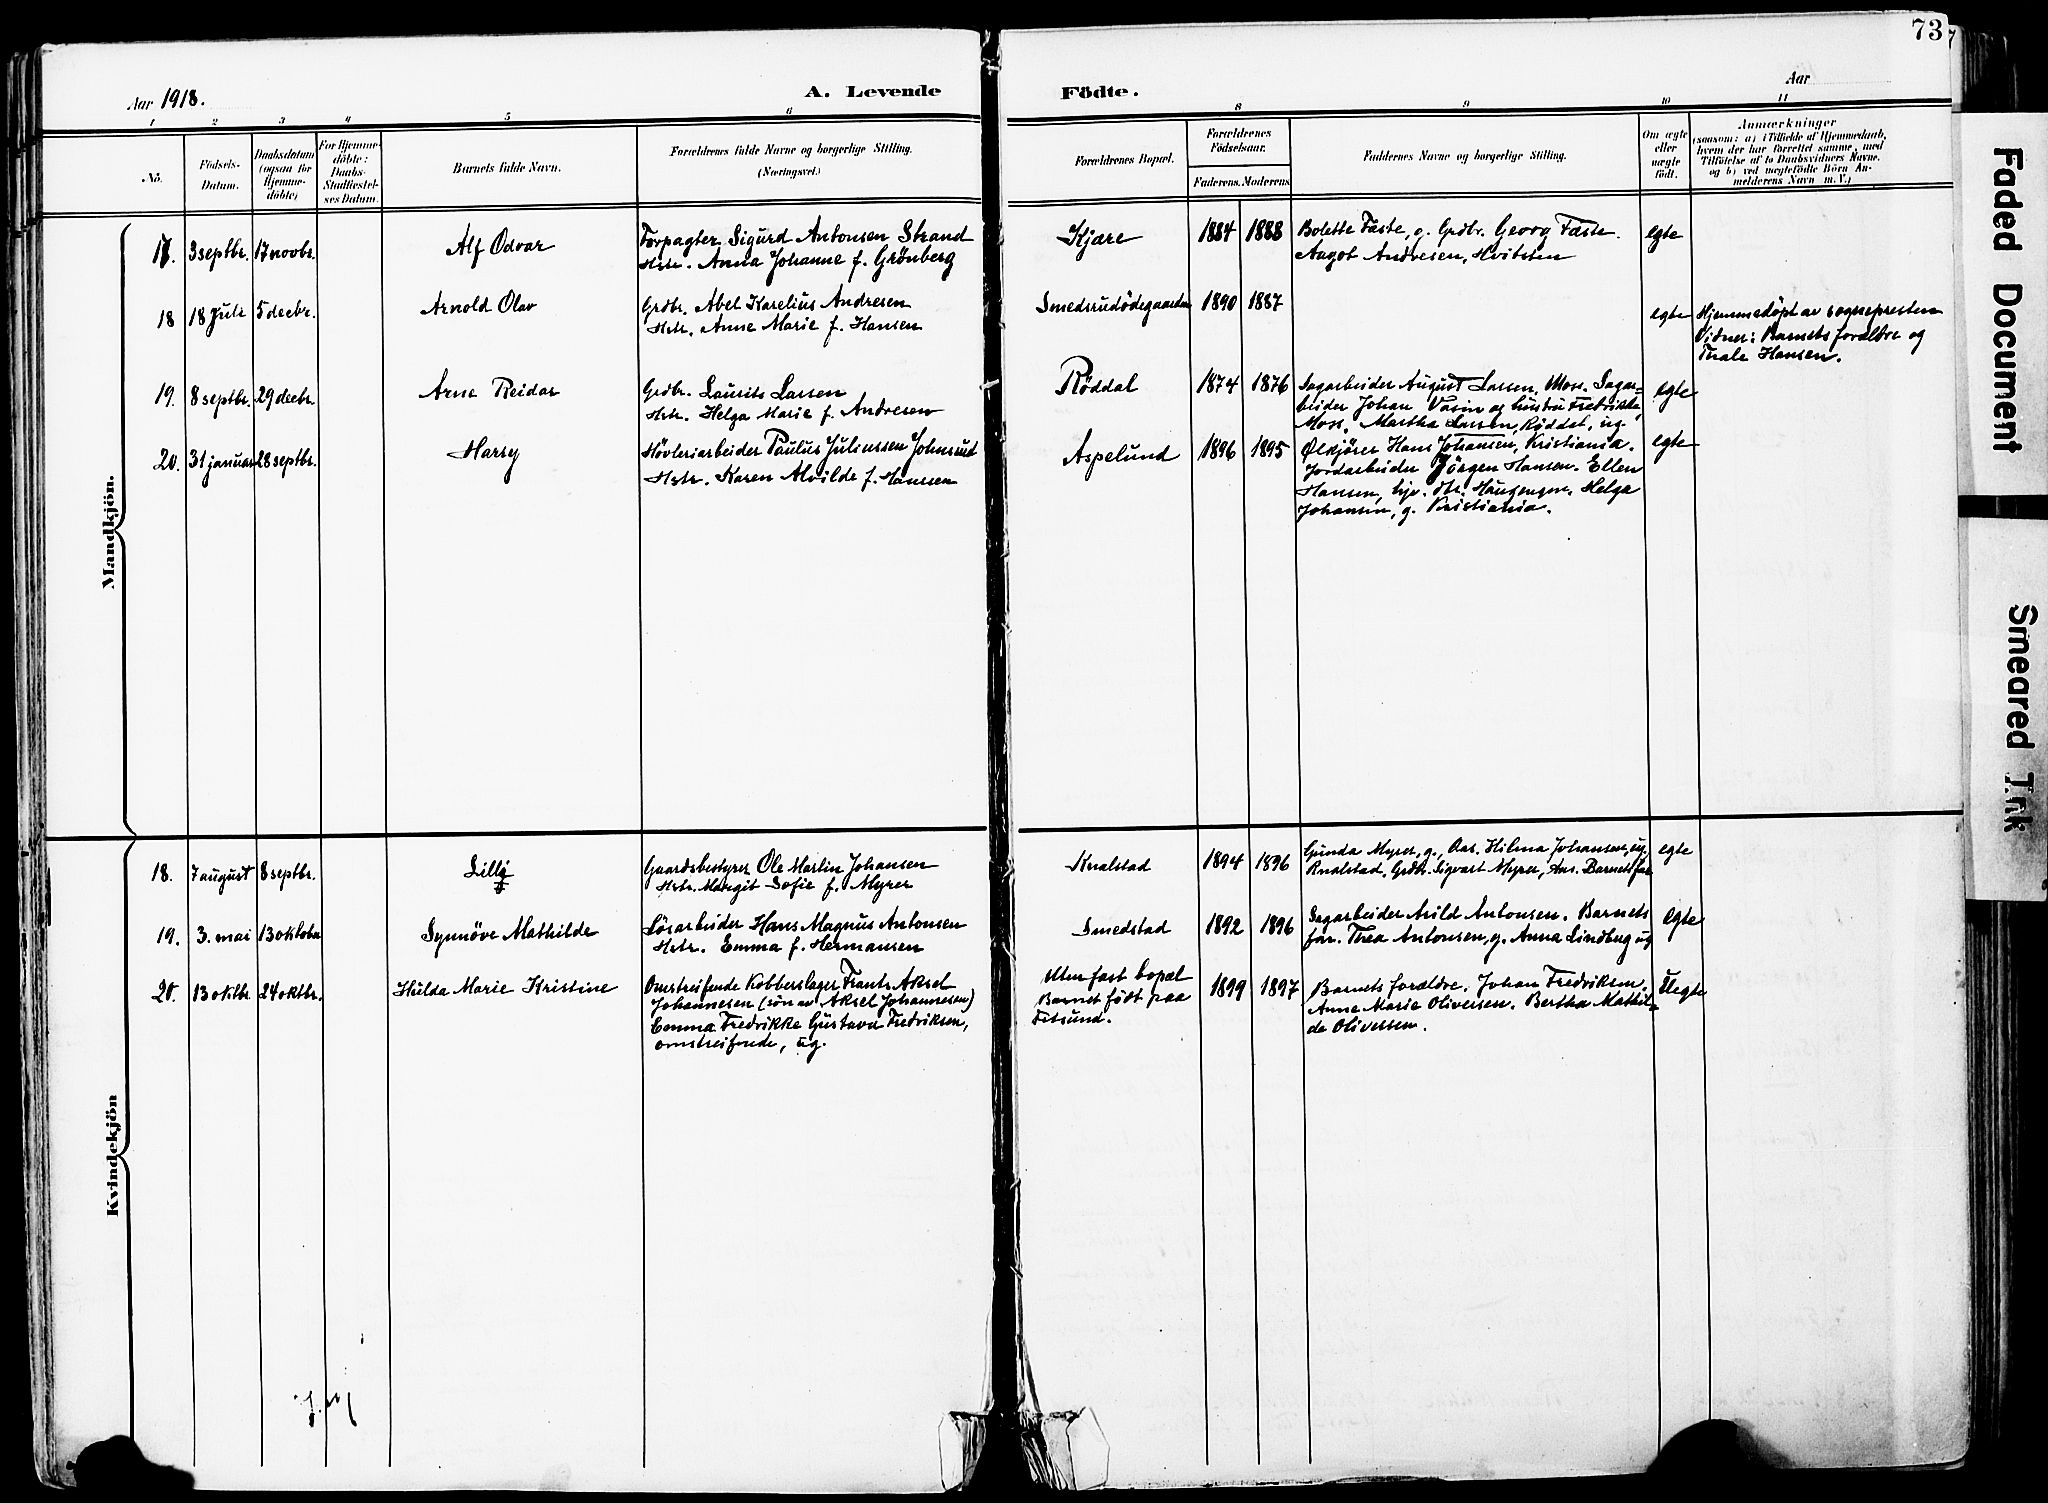 73
Aar 1918.
A. Levende
Födte.
Aar
1 2 3 4 5 6 8 9 10 11
No.
Födsels-
Datum.
Daabsdatum
(ogsaa for
Hjemme-
döbte)
For Hjemme-
döbte:
Daabs-
Stadfæstel-
ses Datum.
Barnets fulde Navn.
Forældrenes fulde Navne og borgerlige Stilling.
(Næringsvei.)
Forældrenes Bopæl.
Forældrenes
Födselsaar.
Faderens. Moderens
Faddernes Navne og borgerlige Stilling.
Om ægte
eller
uægte
födt.
Anmærkninger
(saasom: a) i Tilfælde af Hjemmedaab,
hvem der har forrettet samme, med
Tilföielse af to Daabsvidners Navne,
og b) ved uægtefödte Börn An-
melderens Navn m. V.)
Mandkjön.
17. 3 septbr. 17 novbr. Alf Odvar
Forpagter Sigurd Antonsen Strand
Hstr. Anna Johanne f. Grönberg
Kjære 1884 1888
Bolette Fæste, g. Grdbr. Georg Fæste.
Aagot Andresen, Hvitsten
egte
18 18 juli 5 decbr. Arnold Olav
Grdbr. Abel Karelius Andresen
Hstr. Anne Marie f. Hansen
Smedsrudödegaarden 1890 1887
egte
Hjemmedöpt av sognepresten
Vidner: Barnets forældre og
Thale Hansen.
19. 8 septbr. 29 decbr. Arne Reidar
Grdbr. Laurits Larsen
Hstr. Helga Marie f. Andresen
Röddal 1874 1876
Sagarbeider August Larsen, Moss. Sagar-
beider Johan Vasin og hustru Fredrikke,
Moss. Martha Larsen, Röddel, ug
egte
20. 31 januar 28 septbr. Harry
Hövleriarbeider Paulus Juliussen Johnsrud
Hstr. Karen Alvilde f. Hansen
Aspelund 1896 1895
Ølkjörer Hans Johansen, Kristiania.
Jordarbeider Jörgen Hansen. Ellen
Hansen, hjv. dtr. Haugengen. Helga
Johansen, g. Kristiania.
egte
Kvindekjön
18. 7 august 8 septbr. Lilly
Gaardsbestyrer Ole Martin Johansen
Hstr. Margit Sofie f. Myrer
Knalstad 1894 1896
Gunda Myrer, g., Aas. Hilma Johansen, ug,
Knalstad. Grdbr. Sigvart Myrer, Aas. Barnets far
egte
19. 3. mai 13 oktober Synnöve Mathilde
Lösarbeider Hans Magnus Antonsen
Hstr. Emma f. Hermansen
Smedstad 1892 1896
Sagarbeider Arild Antonsen. Barnets
far. Thea Antonsen, g. Anna Lindberg ug
egte
20. 13 oktbr. 24 oktbr. Hulda Marie Kristine
Omstreifende Kobberslager Frants Aksel
Johannesen (sön av Aksel Johannesen)
Emma Fredrikke Gustava Fredriksen,
omstreifende, ug.
Uten fast bopæl
Barnet födt paa
Fetsund.
1899 1897
Barnets forældre. Johan Fredriksen.
Anne Marie Oliversen. Bertha Mathil-
de Oliversen.
Uegte
Faded Document
Smeared Ink